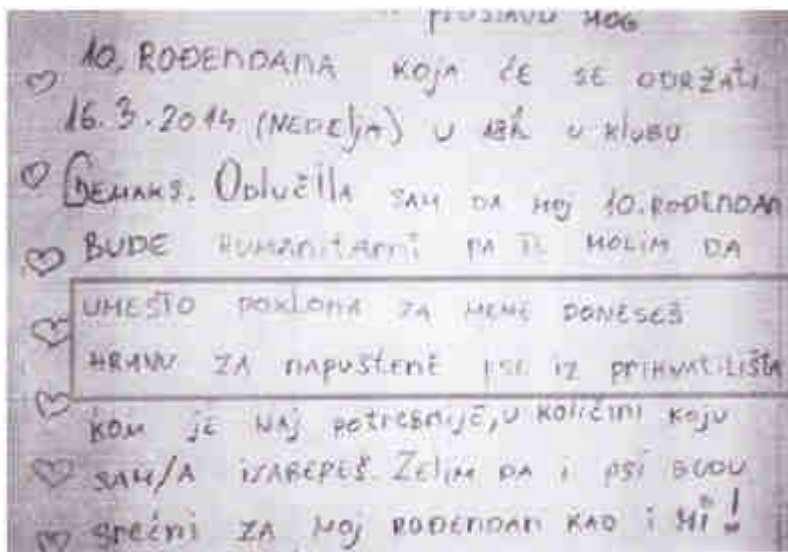 PROSLAVU MOG
10. ROĐENDANA KOJA ĆE SE ODRŽATI
16.3.2014 (NEDELJA) U 18h U KLUBU
DEMAKS. ODLUČILA SAM DA MOJ 10. ROĐENDAN
BUDE HUMANITARNI PA TE MOLIM DA
UMESTO POKLONA ZA MENE DONESEŠ
HRANU ZA NAPUŠTENE PSE IZ PRIHVATILIŠTA
KOM JE NAJ POTREBNIJE, U KOLIČINI KOJU
SAM/A IZABEREŠ. ŽELIM DA I PSI BUDU
SREĆNI ZA MOJ ROĐENDAN KAO I MI!